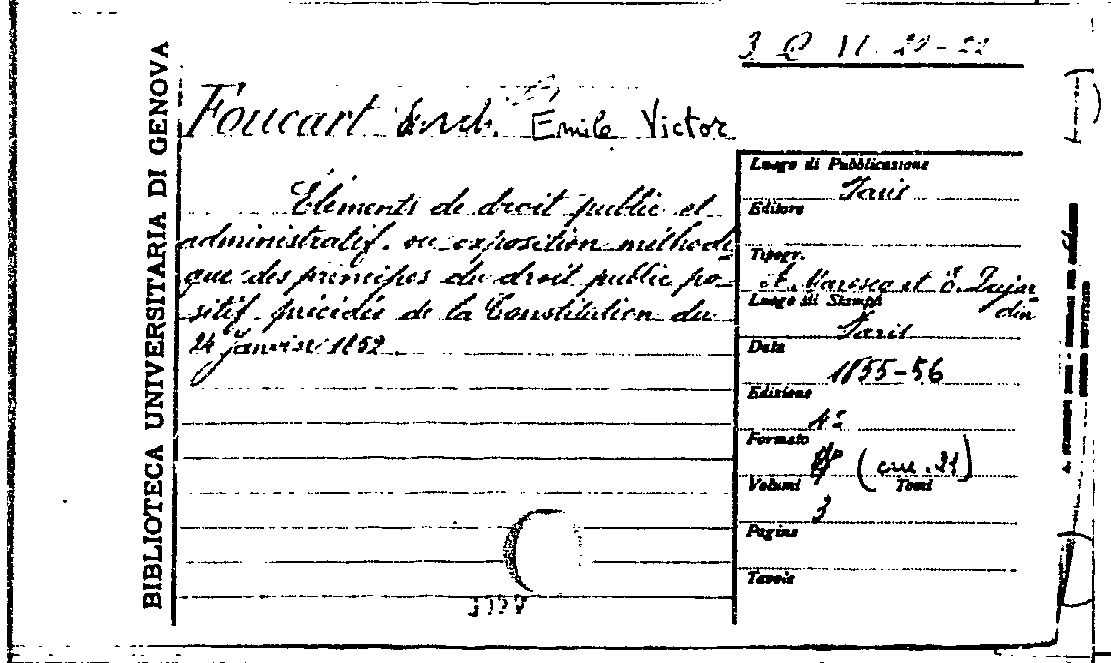 BIBLIOTECA UNIVERSITARIA DI GENOVA
3 Q 11. 20-22
Foucart Emile Victor
Eléments de droit public et
administratif, ou exposition méthodi-
que des principes du droit public po-
sitif, précédée de la Constitution du
24 janvier 1852
Luogo di Pubblicazione
Paris
Editore
Tipogr.
A. Maresco et E. Dujar-
din
Luogo di Stampa
Paris
Data
1855-56
Edizione
4ª
Formato
8º (cm. 21)
Volumi Tomi
3
Pagine
Tavole